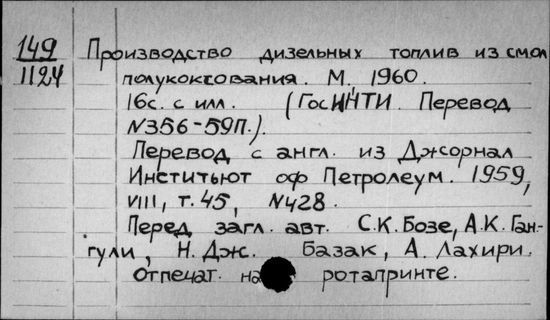 149
1124
Производство дизельных топлив из смол
полукоксования. М. 1960.
16с. с илл. (ГосИНТИ. Перевод
N356-59П.).
Перевод с англ. из Джорнал
Институют оф Петролеум. 1959,
VIII, т. 45, N428.
Перед загл. авт. С.К. Бозе, А.К. Ган-
гули, Н. Дж. Базак, А. Лахири.
Отпечат. на ротапринте.